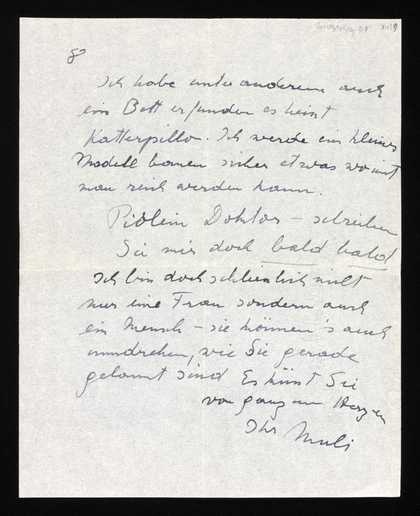 8
Ich habe unter anderem auch
ein Bett erfunden es heist
Katterpillo. Ich werde ein kleines
Modell bauen sicher etwas womit
man reich werden kann.
Doktor – schreiben
Sie mir doch bald bald
Ich bin doch schlieslich nicht
nur eine Frau sondern auch
ein Mensch – sie können's auch
umdrehen, wie Sie gerade
gelaunt sind Es küsst Sie
von ganzem Herzen
Ihr Muli